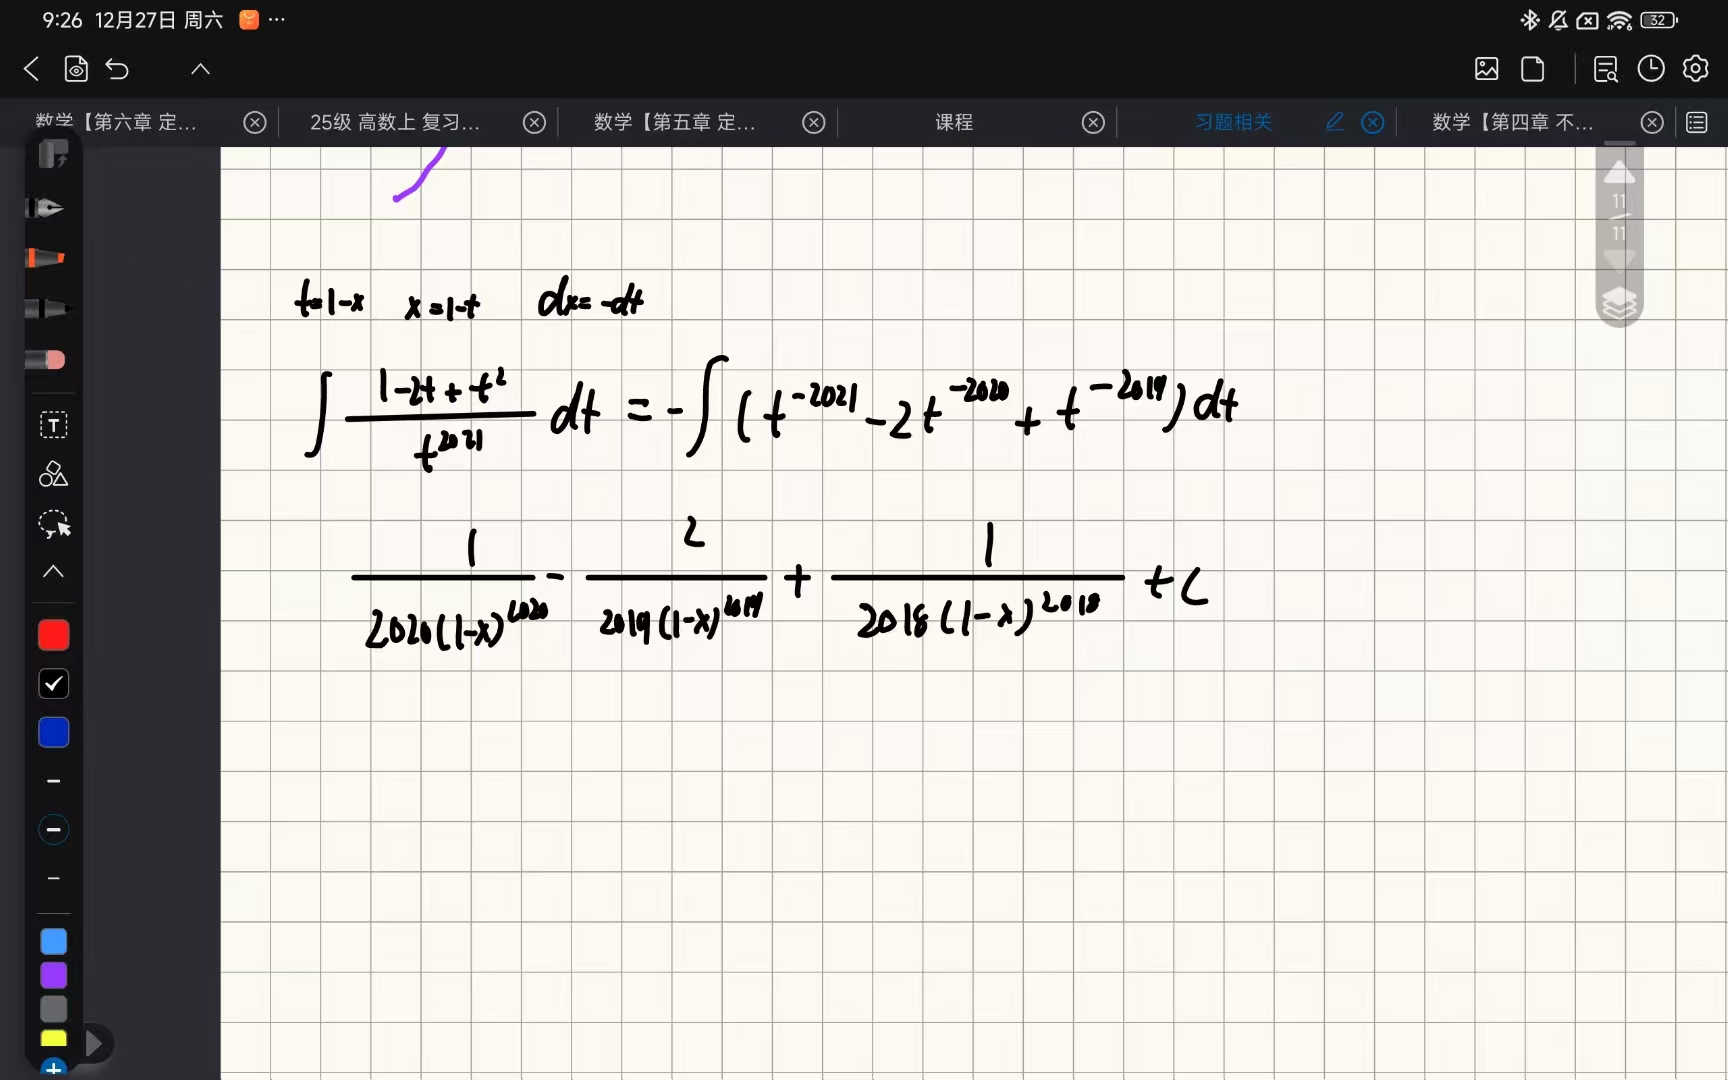 9:26 12月27日 周六 ··· 32
数学【第六章 定... 25级 高数上 复习... 数学【第五章 定... 课程 习题相关 数学【第四章 不...
11
11
t=1-x x=1-t dx=-dt
∫ (1-2t+t²)/t²⁰²¹ dt = -∫(t⁻²⁰²¹ - 2t⁻²⁰²⁰ + t⁻²⁰¹⁹)dt
1/(2020(1-x)²⁰²⁰) - 2/(2019(1-x)²⁰¹⁹) + 1/(2018(1-x)²⁰¹⁸) + C
T